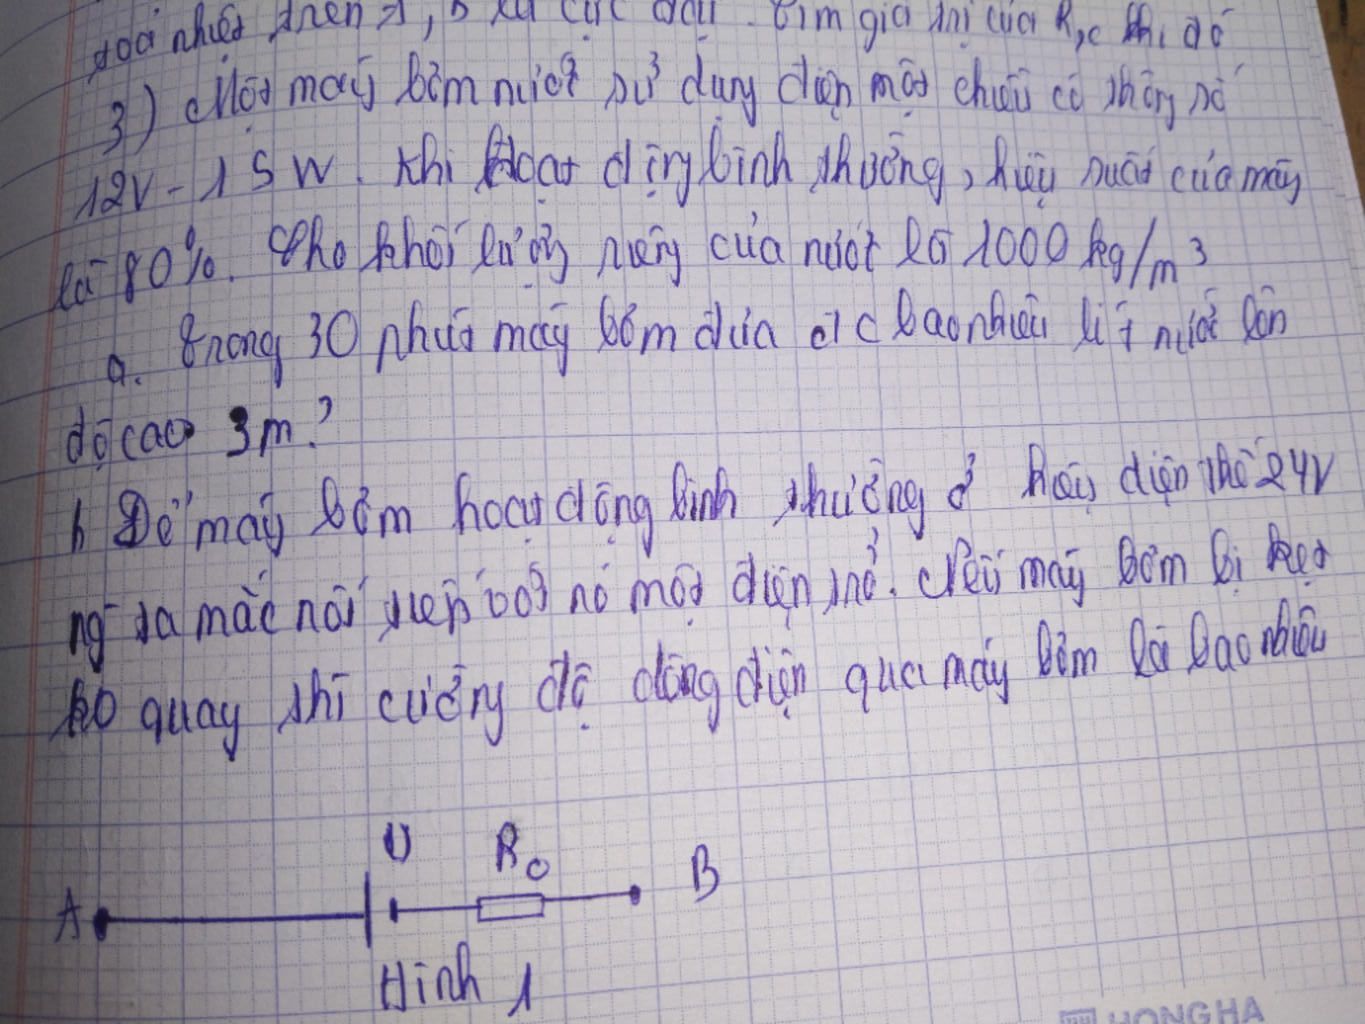 toả nhiệt trên A, B đạt cực đại. Tìm giá trị của R,c khi đó
3) Một máy bơm nước sử dụng điện một chiều có thông số
12V - 15W. Khi hoạt động bình thường, hiệu suất của máy
là 80%. Cho khối lượng riêng của nước là 1000 kg/m³
a. Trong 30 phút máy bơm đưa đc bao nhiêu lít nước lên
độ cao 3m?
b Để máy bơm hoạt động bình thường ở hiệu điện thế 24V
ng ta mắc nối tiếp với nó một điện trở. Nếu máy bơm bị kẹt
ko quay thì cường độ dòng điện qua máy bơm là bao nhiêu
U R₀
A B
Hình 1
HONG HA